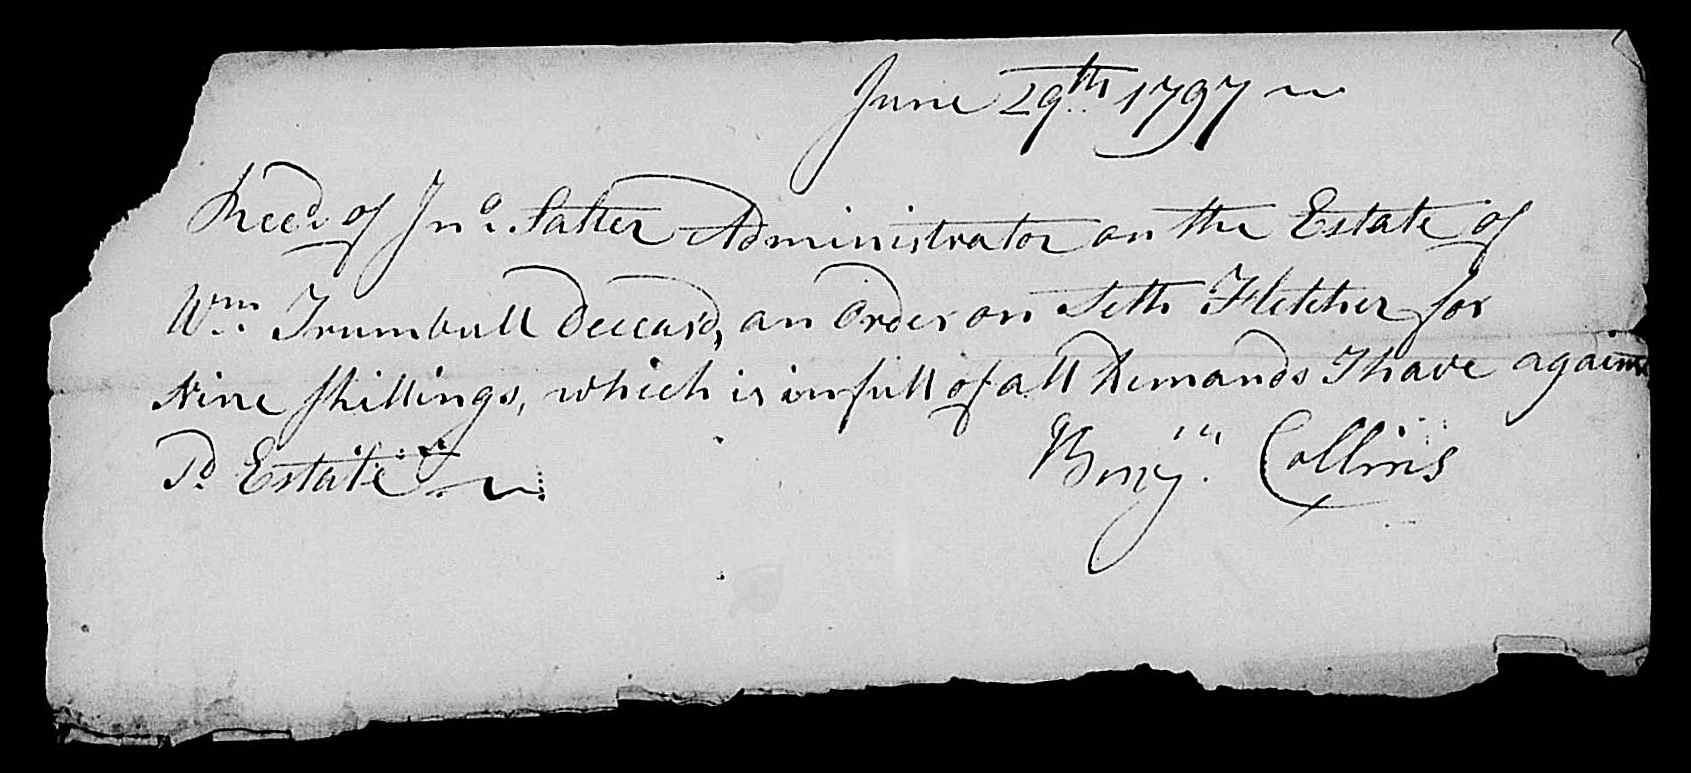 June 29th 1797
Recd of Jno. Salter Administrator on the Estate of
Wm. Trumbull Deceasd, an Order on Seth Fletcher for
Nine Shillings, which is in full of all Demands I have against
Sd Estate
Benjn. Collins